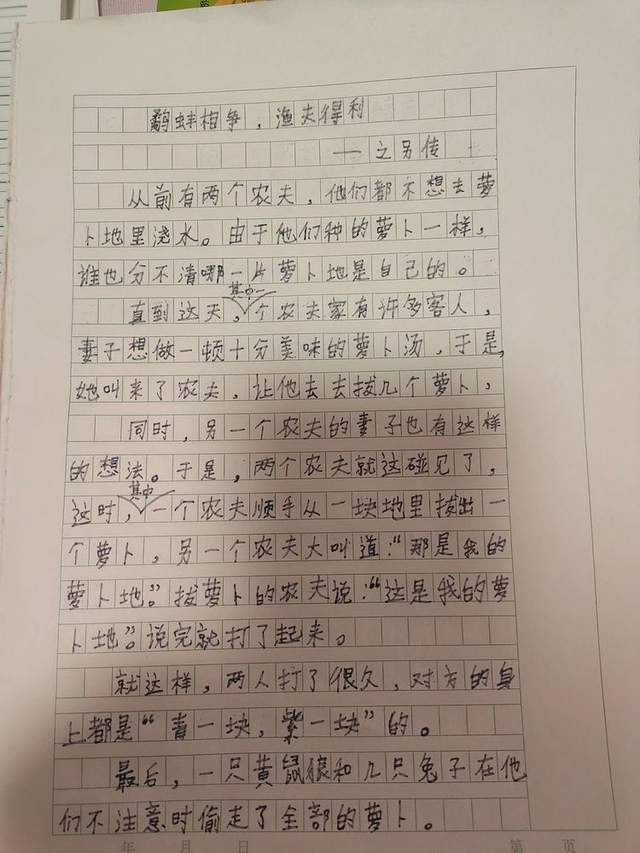 鹬蚌相争，渔夫得利
——之另传
从前有两个农夫，他们都不想去萝
卜地里浇水。由于他们种的萝卜一样，
谁也分不清哪一片萝卜地是自己的。
直到这天，其中一个农夫家有许多客人，
妻子想做一顿十分美味的萝卜汤，于是，
她叫来了农夫，让他去去拔几个萝卜，
同时，另一个农夫的妻子也有这样
的想法。于是，两个农夫就这碰见了，
这时，其中一个农夫顺手从一块地里拔出一
个萝卜，另一个农夫大叫道：“那是我的
萝卜地”。拔萝卜的农夫说：“这是我的萝
卜地”。说完就打了起来。
就这样，两人打了很久，对方的身
上都是“青一块，紫一块”的。
最后，一只黄鼠狼和几只兔子在他
们不注意时偷走了全部的萝卜。
年 月 日 第 页